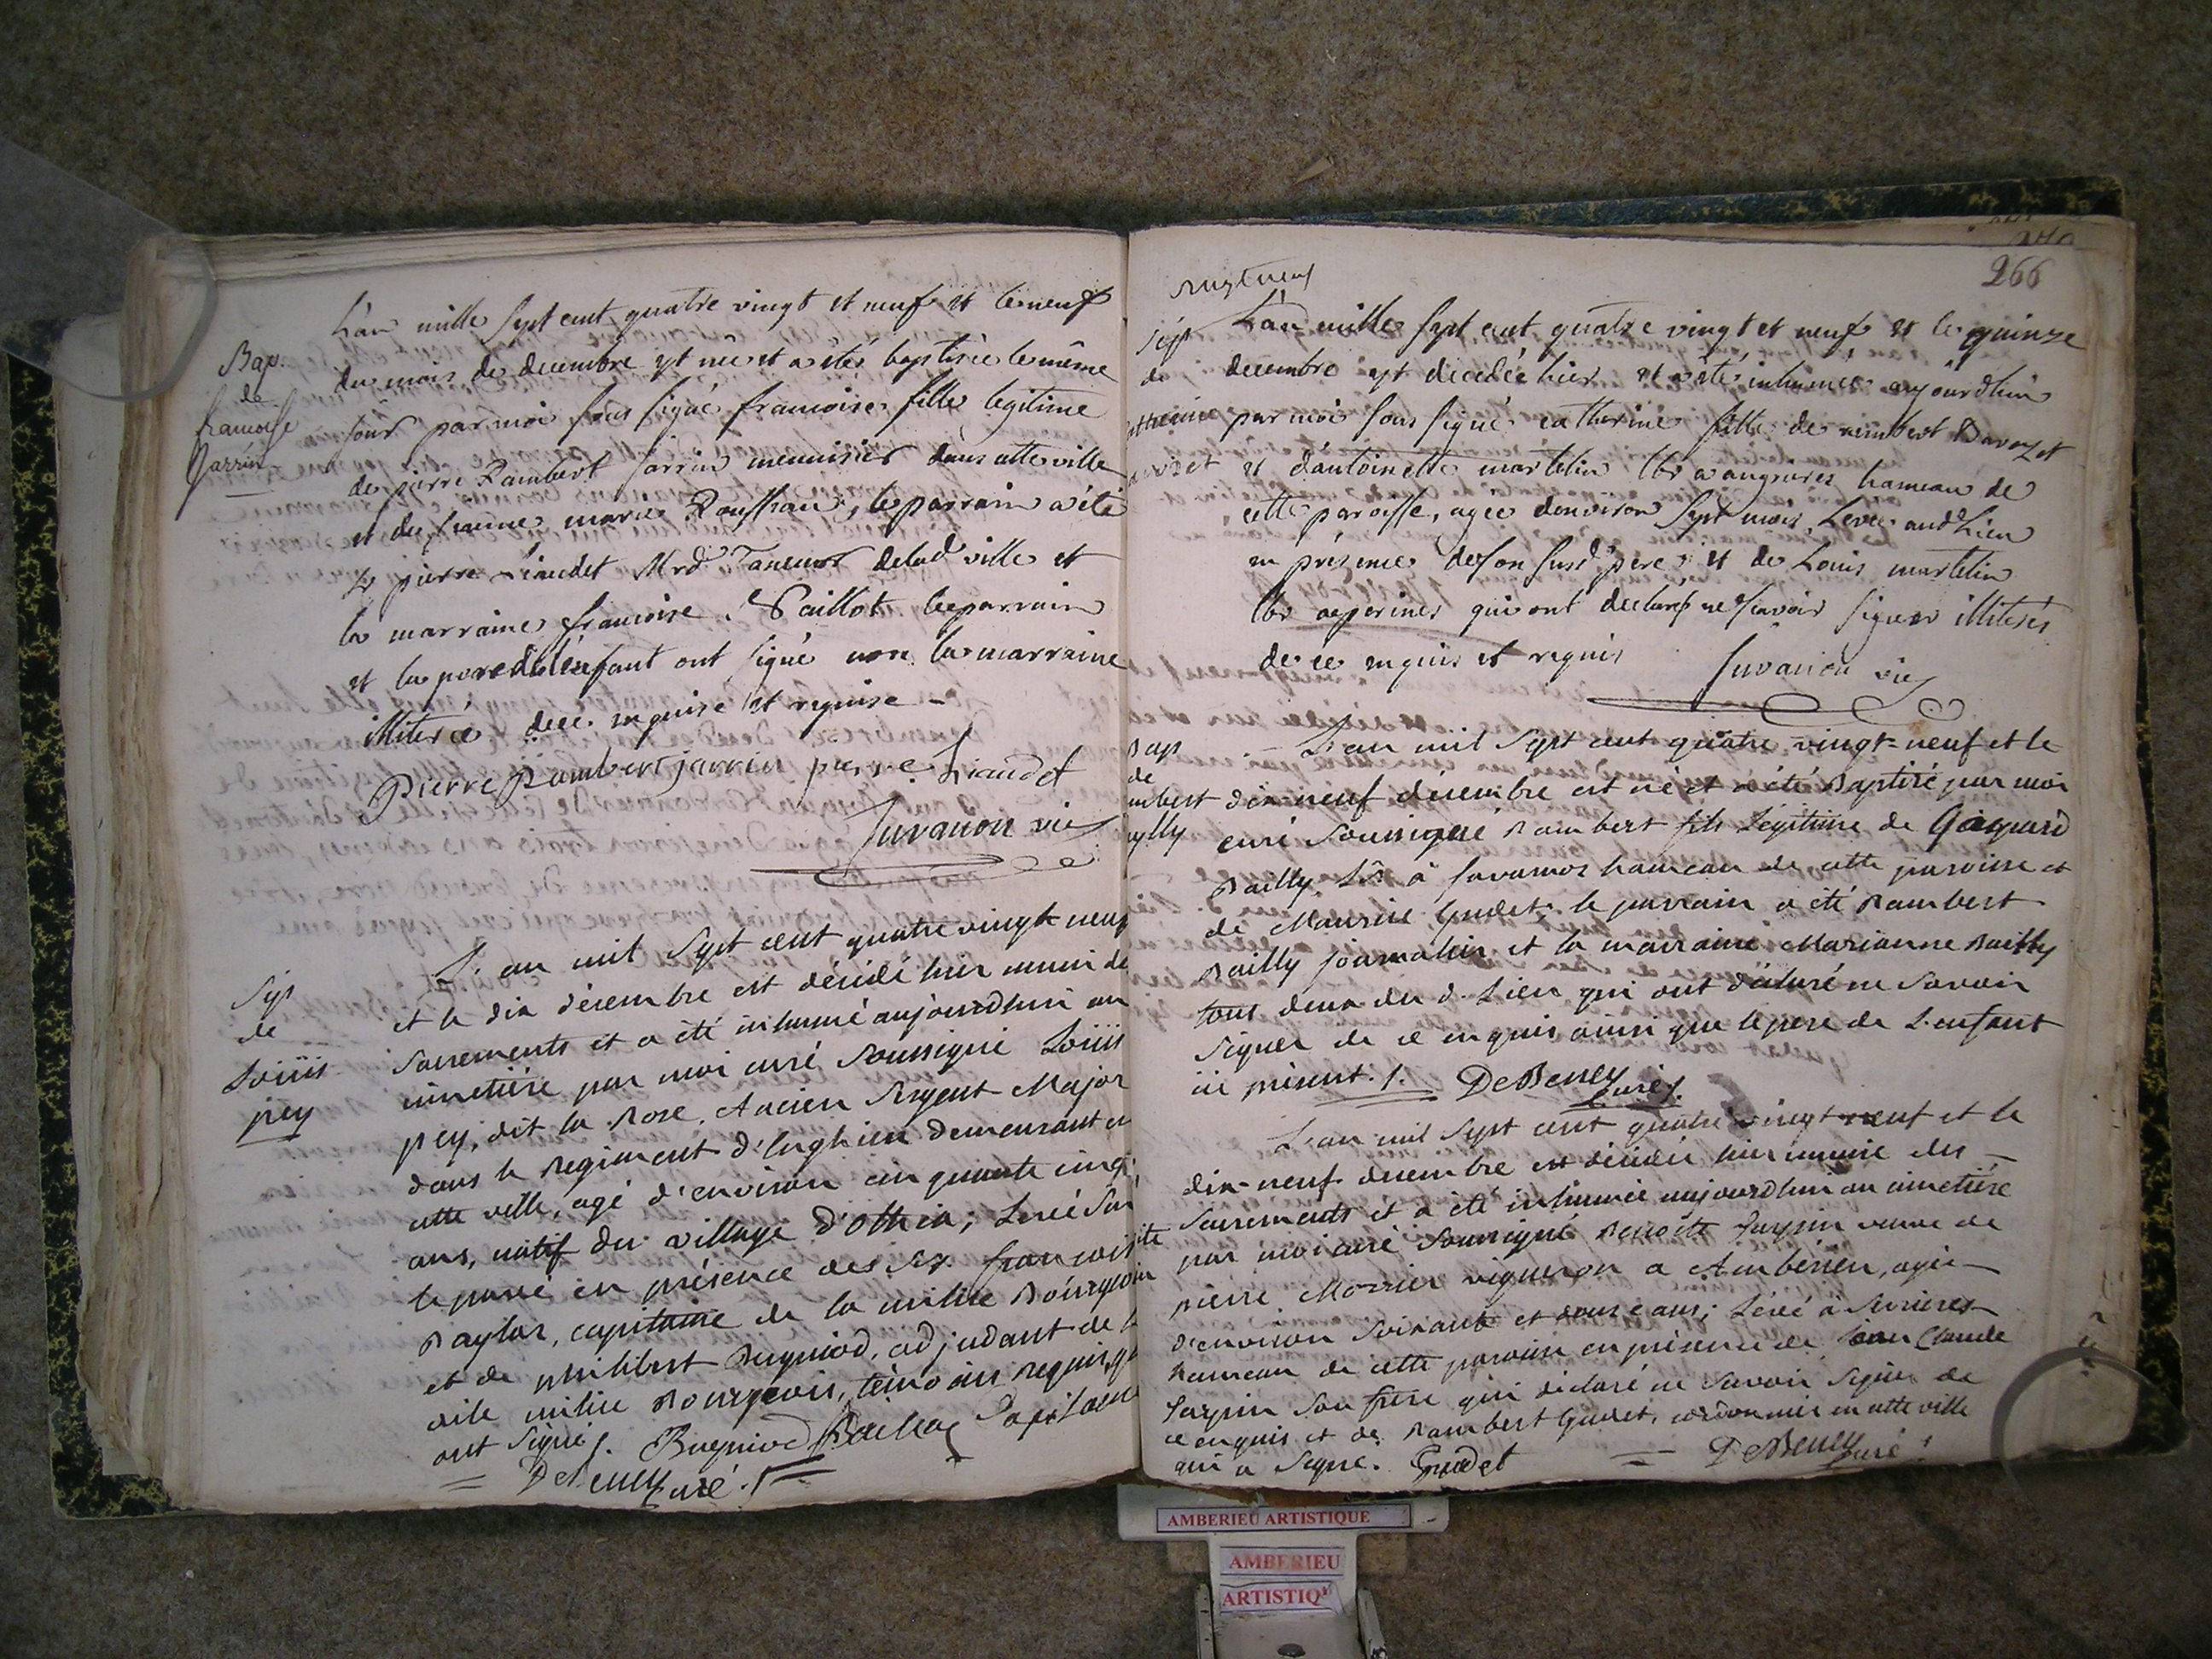 L'an mille sept cent quatre vingt et neuf et le neuf
Bap.
du mois de decembre est née et a été baptisée le même
de
francoise
jour par moi sous signé francoise fille legitime
Jarrin
de pierre Rambert Jarrin menuisier dans cette ville
et de jeanne marie le parrain a été
Sr pierre Liaudet Mrd Taneur de lad ville et
la marraine francoise Paillot le parrain
et le pere de l'enfant ont signé non la marraine
illiterée de ce enquise et requise -
Pierre Rambert jarrin pierre Liaudet
Juvanon vic
L'an mil sept cent quatre vingt neuf
Sep
et le dix décembre est décédé hier muni de
de
sacrements et a été inhumé aujourdhui au
Loüis
cimetiére par moi curé soussigné Loüis
pey
pey, dit la Rose, Ancien Sergent Major
dans le Regiment d'Enghien demeurant en
cette ville, agé d'environ cinquante cinq
ans, natif du village d'; Levé Sur
le pavé en présence des Srs. francois
capitaine de la milice Bourgeoise
et de philibert Bugniod, adjudant de la
dite milice Bourgeoise, témoins Requis, qui
ont signé ./. Bugniod Capitaine
= DeBeney curé ./=
266
vingt neuf
Sep
L'an mille sept cent quatre vingt et neuf et le quinze
de
decembre est decedée hier et a été inhumée aujourdhui
catherine
par moi sous signé catherine fille de rambert Bavozet
et d'antoinette martelin Lbr a hameau de
cette paroisse, agée denviron sept mois, Levée aud Lieu
en présence de son susd père, et de Louis martelin
Lbr qui ont declaré ne sçavoir signer illiterés
de ce enquis et requis Juvanon vic
Bap
L'an mil sept cent quatre vingt-neuf et le
de
mbert
dix-neuf décembre est né et a été Baptisé par moi
ylly
curé soussigné Rambert fils Légitime de Gaspard
Bailly Lr. à hameau de cette paroisse et
de Maurise Gudet; le parrain a été Rambert
Bailly journalier et la marraine Marianne Bailly
tous deux du d. Lieu qui ont déclaré ne savoir
signer de ce enquis, ainsi que le pere de L'enfant
ici présent ./. DeBeney curé ./.
L'an mil sept cent quatre vingt-neuf et le
dix-neuf decembre est décédée hier munie des -
sacrements et a été inhumée aujourdhui au cimetiére
par moi curé soussigné Benoite Sarpin veuve de
pierre vigneron a Ambérieu, agée -
d'environ soixante et ans; Levée à
hameau de cette paroisse en présence de jean Claude
Sarpin son frere qui déclaré ne savoir signer de
ce enquis et de Rambert Gudet, cordonnier en cette ville
qui a signé. Gudet = DeBeney curé
AMBERIEU ARTISTIQUE
AMBERIEU
ARTISTIQ